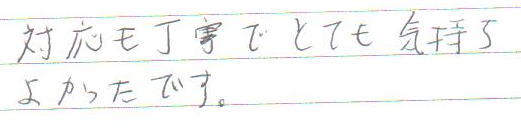 対応も丁寧でとても気持ち
よかったです。